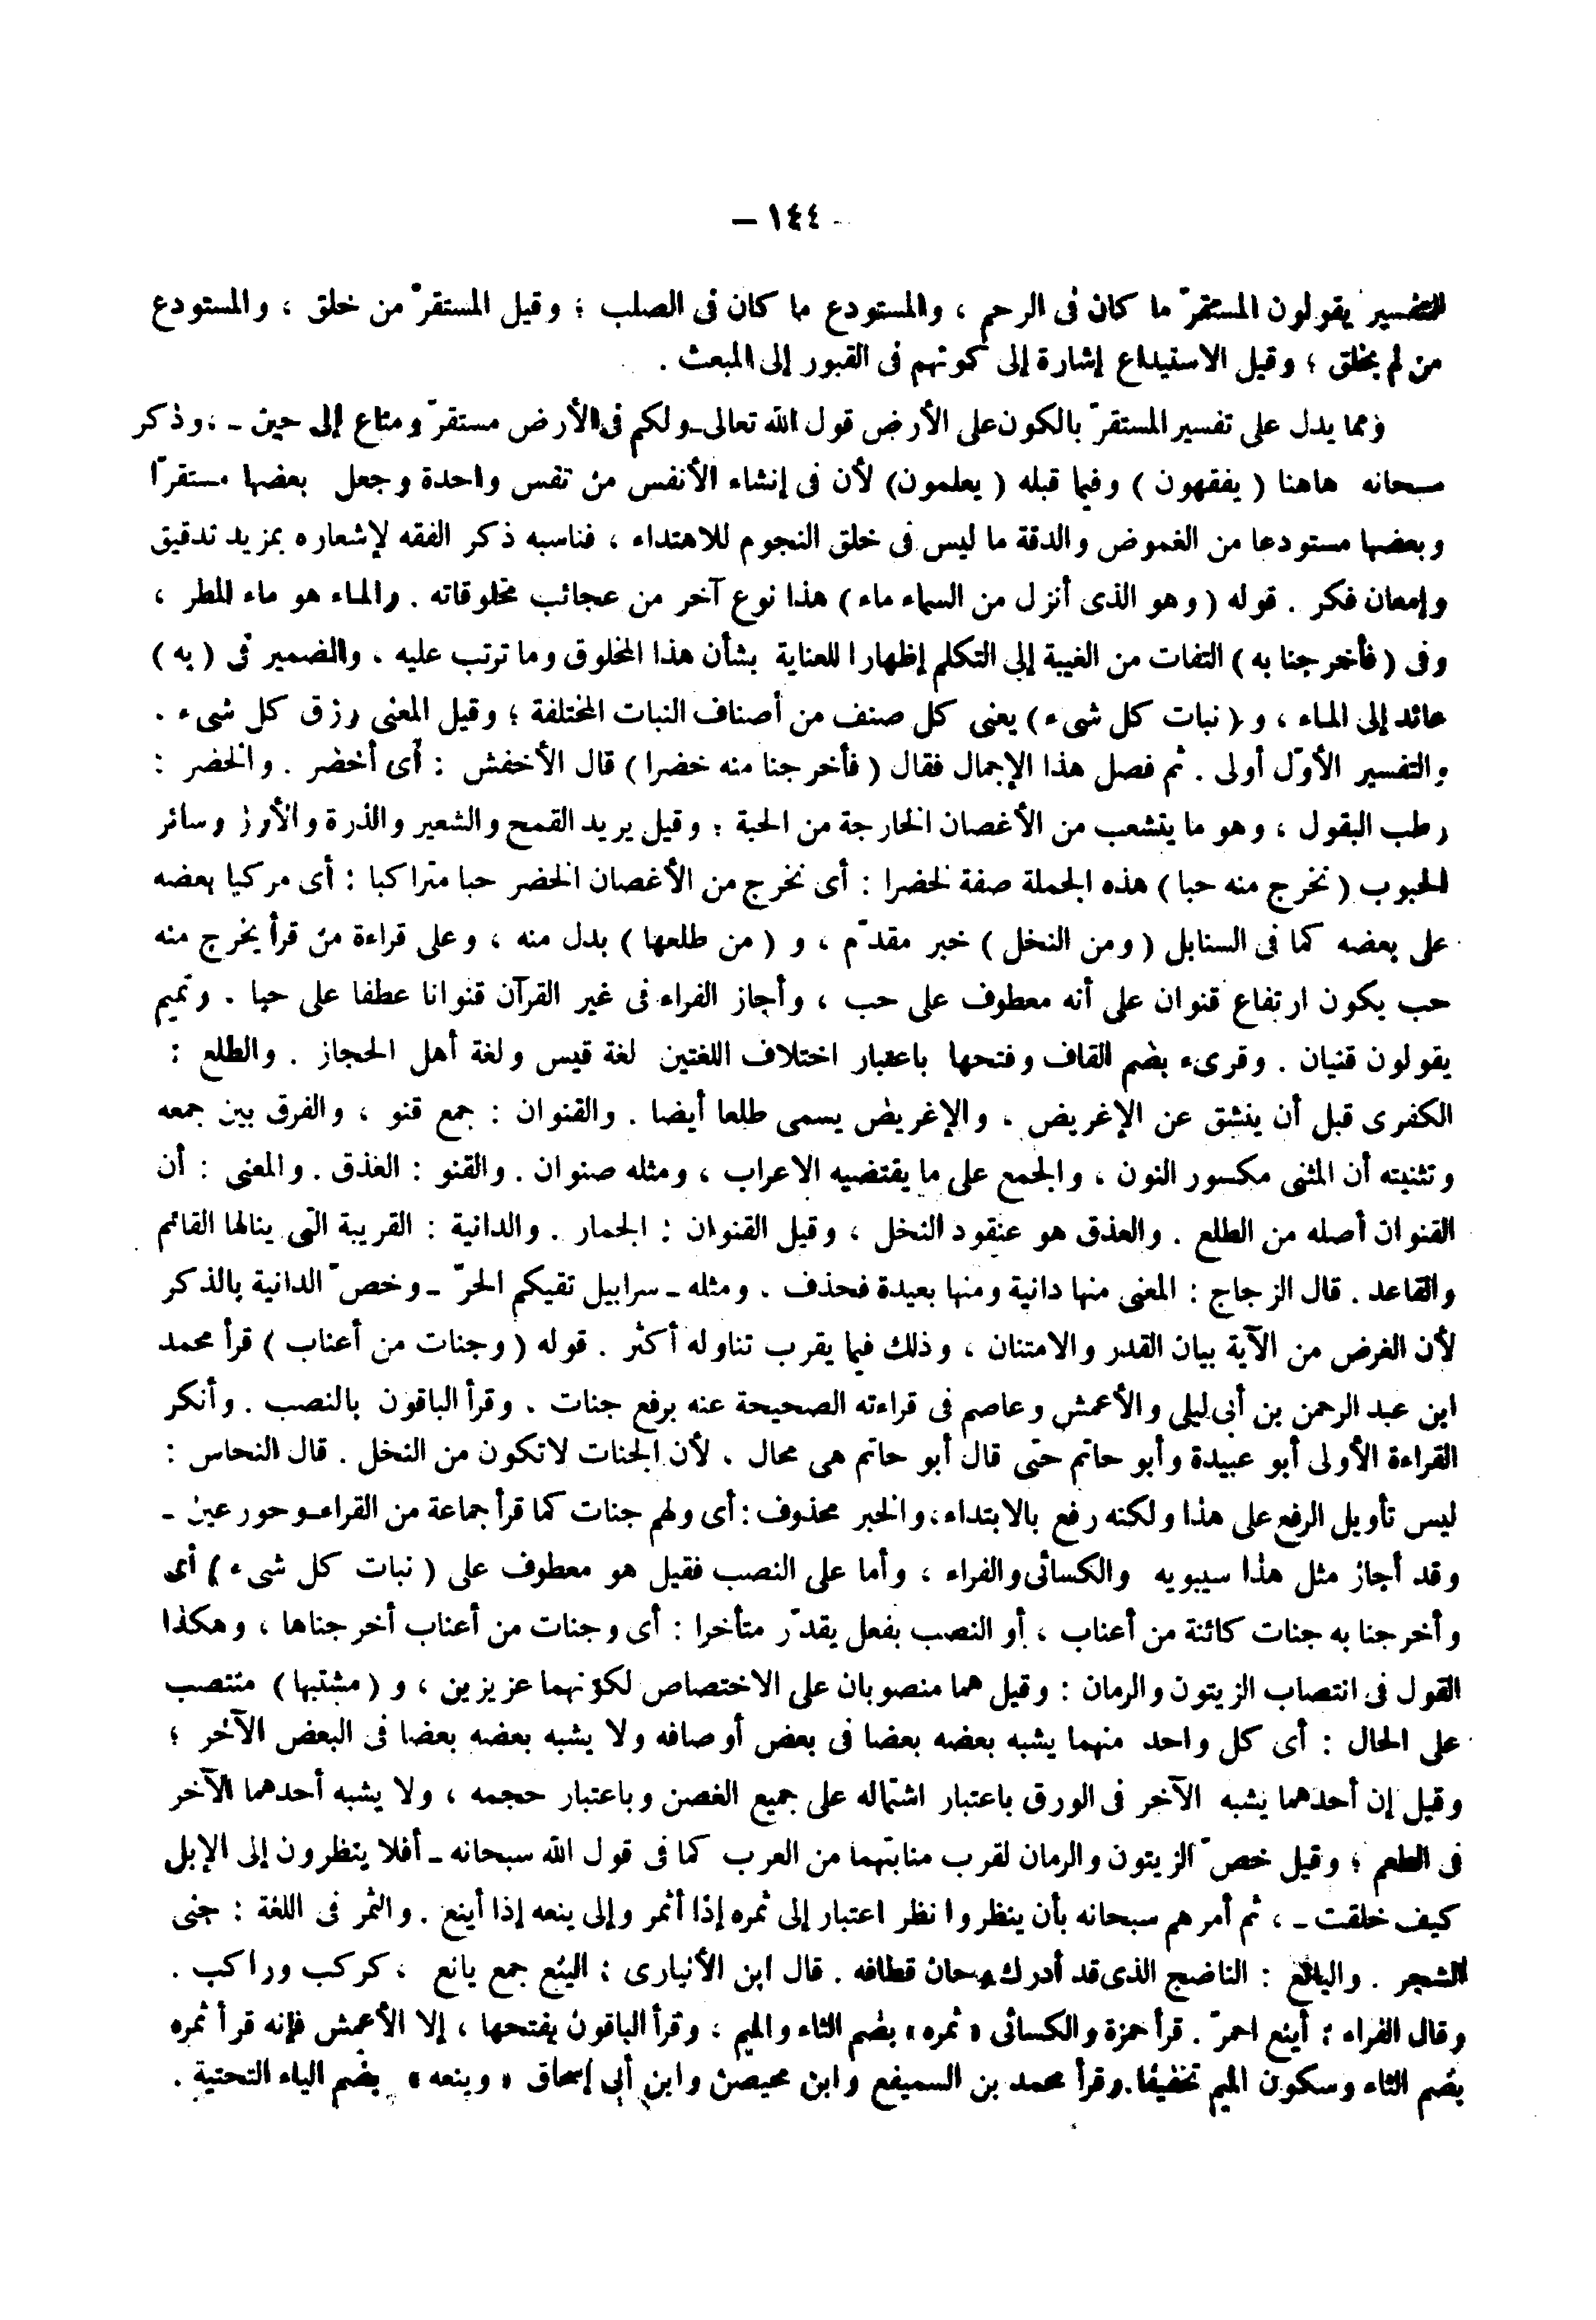 - ١٤٤ -
التفسير يقولون المستقرّ ما كان فى الرحم ، والمستودع ما كان فى الصلب ؛ وقيل المستقرّ من خلق ، والمستودع
من لم يخلق ؛ وقيل الاستيداع إشارة إلى كونهم فى القبور إلى المبعث .
ومما يدل على تفسير المستقرّ بالكون على الأرض قول الله تعالى ـ ولكم فى الأرض مستقرّ ومتاع إلى حين ـ ، وذكر
سبحانه هاهنا ( يفقهون ) وفيما قبله ( يعلمون ) لأن فى إنشاء الأنفس من نفس واحدة وجعل بعضها مستقرّا
وبعضها مستودعا من الغموض والدقة ما ليس فى خلق النجوم للاهتداء ، فناسبه ذكر الفقه لإشعاره بمزيد تدقيق
وإمعان فكر . قوله ( وهو الذى أنزل من السماء ماء ) هذا نوع آخر من عجائب مخلوقاته . والماء هو ماء المطر ،
وفى ( فأخرجنا به ) التفات من الغيبة إلى التكلم إظهارا للعناية بشأن هذا المخلوق وما ترتب عليه ، والضمير فى ( به )
عائد إلى الماء ، و ( نبات كل شىء ) يعنى كل صنف من أصناف النبات المختلفة ؛ وقيل المعنى رزق كل شىء .
والتفسير الأوّل أولى . ثم فصل هذا الإجمال فقال ( فأخرجنا منه خضرا ) قال الأخفش : أى أخضر . والخضر :
رطب البقول ، وهو ما يتشعب من الأغصان الخارجة من الحبة ؛ وقيل يريد القمح والشعير والذرة والأرز وسائر
الحبوب ( نخرج منه حبا ) هذه الجملة صفة لخضرا : أى نخرج من الأغصان الخضر حبا متراكبا : أى مركبا بعضه
على بعضه كما فى السنابل ( ومن النخل ) خبر مقدّم ، و ( من طلعها ) بدل منه ، وعلى قراءة من قرأ يخرج منه
حب يكون ارتفاع قنوان على أنه معطوف على حب ، وأجاز الفراء فى غير القرآن قنوانا عطفا على حبا . وتميم
يقولون قنيان . وقرىء بضم القاف وفتحها باعتبار اختلاف اللغتين لغة قيس ولغة أهل الحجاز . والطلع :
الكفرى قبل أن ينشق عن الإغريض ، والإغريض يسمى طلعا أيضا . والقنوان : جمع قنو ، والفرق بين جمعه
وتثنيته أن المثنى مكسور النون ، والجمع على ما يقتضيه الاعراب ، ومثله صنوان . والقنو : العذق . والمعنى : أن
القنوان أصله من الطلع . والعذق هو عنقود النخل ، وقيل القنوان : الجمار . والدانية : القريبة التى ينالها القائم
والقاعد . قال الزجاج : المعنى منها دانية ومنها بعيدة فحذف . ومثله ـ سرابيل تقيكم الحرّ ـ وخصّ الدانية بالذكر
لأن الغرض من الآية بيان القدر والامتنان ، وذلك فيما يقرب تناوله أكثر . قوله ( وجنات من أعناب ) قرأ محمد
ابن عبد الرحمن بن أبى ليلى والأعمش وعاصم فى قراءته الصحيحة عنه برفع جنات . وقرأ الباقون بالنصب . وأنكر
القراءة الأولى أبو عبيدة وأبو حاتم حتى قال أبو حاتم هى محال ، لأن الجنات لا تكون من النخل . قال النحاس :
ليس تأويل الرفع على هذا ولكنه رفع بالابتداء ، والخبر محذوف : أى ولهم جنات كما قرأ جماعة من القراء ـ وحور عين ـ
وقد أجاز مثل هذا سيبويه والكسائى والفراء ، وأما على النصب فقيل هو معطوف على ( نبات كل شىء ) أى
وأخرجنا به جنات كائنة من أعناب ، أو النصب بفعل يقدّر متأخرا : أى وجنات من أعناب أخرجناها ، وهكذا
القول فى انتصاب الزيتون والرمان : وقيل هما منصوبان على الاختصاص لكونهما عزيزين ، و ( مشتبها ) منتصب
على الحال : أى كل واحد منهما يشبه بعضه بعضا فى بعض أوصافه ولا يشبه بعضه بعضا فى البعض الآخر ؛
وقيل إن أحدهما يشبه الآخر فى الورق باعتبار اشتماله على جميع الغصن وباعتبار حجمه ، ولا يشبه أحدهما الآخر
فى الطعم ؛ وقيل خصّ الزيتون والرمان لقرب منابتهما من العرب كما فى قول الله سبحانه ـ أفلا ينظرون إلى الإبل
كيف خلقت ـ ، ثم أمرهم سبحانه بأن ينظروا نظر اعتبار إلى ثمره إذا أثمر وإلى ينعه إذا أينع . والثمر فى اللغة : جنى
الشجر . واليانع : الناضج الذى قد أدرك وحان قطافه . قال ابن الأنبارى : الينع جمع يانع ، كركب وراكب .
وقال الفراء : أينع احمرّ . قرأ حمزة والكسائى « ثمره » بضم الثاء والميم ، وقرأ الباقون بفتحها ، إلا الأعمش فإنه قرأ ثمره
بضم الثاء وسكون الميم تخفيفا . وقرأ محمد بن السميفع وابن محيصن وابن أبى إسحاق « وينعه » بضم الياء التحتية .